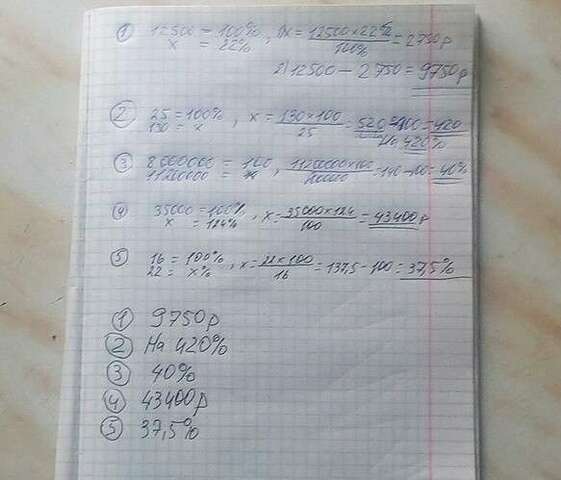 ① 12500 = 100%
x = 22% , 1)x = 12500×22% / 100% = 2750р
2) 12500 - 2750 = 9750р
② 25 = 100%
130 = x , x = 130×100 / 25 = 520-100 = 420
На 420%
③ 8000000 = 100
11200000 = x , = 140-100 = 40%
④ 35000 = 100%
x = 124% , x = 35000×124 / 100 = 43400р
⑤ 16 = 100%
22 = x% , x = 22×100 / 16 = 137,5-100 = 37,5%
① 9750р
② На 420%
③ 40%
④ 43400р
⑤ 37,5%